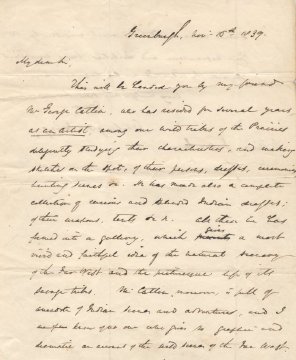 Greenburgh, Nov. 15th 1839
My dear Sir.
This will be handed you by my friend
Mr George Catlin, who has resided for several years
as an artist, among our wild tribes of the Prairies
diligently studying their characters, and making
sketches on the spot, of their persons, dresses, ceremonies
hunting scenes &c. He has made also a complete
collection of various and Indian dresses;
of their weapons, tents &c &c. All these he has
formed into a gallery, which gives a most
vivid and faithful idea of the natural scenery
of the Far West and the picturesque life of its
savage tribes. Mr Catlin, moreover, is full of
anecdote of Indian scenes and adventures, and I
know one who give so graphic and
dramatic an account of the wild scenes of the Far West